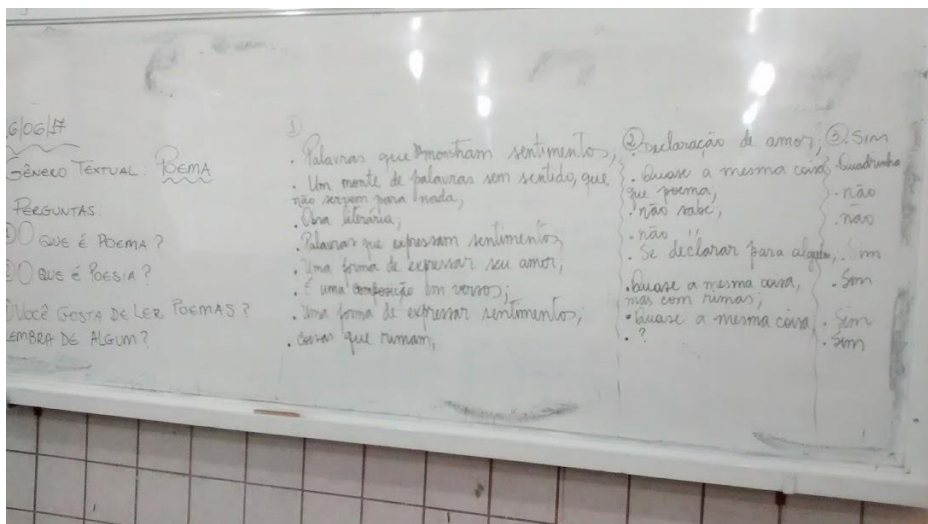 6/06/17
GÊNERO TEXTUAL: POEMA
PERGUNTAS:
① O QUE É POEMA?
② O QUE É POESIA?
VOCÊ GOSTA DE LER POEMAS?
LEMBRA DE ALGUM?
①
. Palavras que monstham sentimentos,
. Um monte de palavras sem sentido, que
não servem para nada;
. Obra literária;
. Palavras que expressam sentimentos;
. Uma forma de expressar seu amor;
. É uma composição em versos;
. Uma forma de expressar sentimentos;
. coisas que rimam;
② Declaração de amor;
. Quase a mesma coisa
que poema;
. não sabe;
. não ;;
. Se declarar para alguém;
. Quase a mesma coisa,
mas com rimas;
. Quase a mesma coisa
. ?
③. Sim
Quadrinha
. não
. não
. Sim
. Sim
. Sim
. Sim